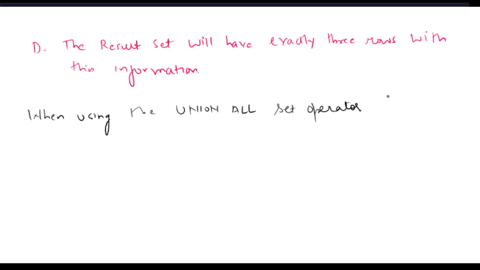 D. The Result set will have exactly three rows with
this information
When using the UNION ALL set operator